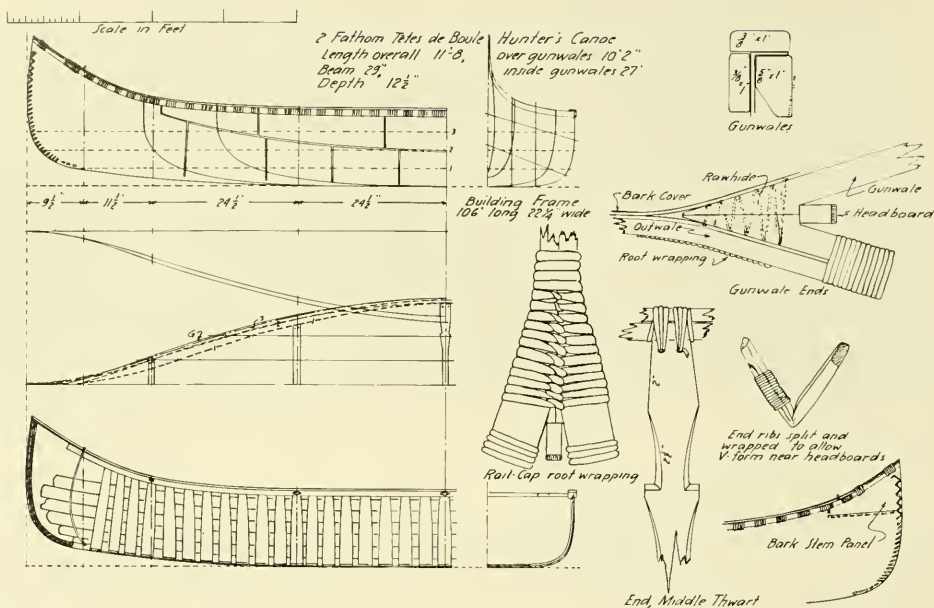 Scale in Feet
2 Fathom Têtes de Boule Hunter's Canoe
Length overall 11'-8" over gunwales 10'2"
Beam 29" inside gunwales 27"
Depth 12½"
3
2
1
9½"
11½"
24½"
24½"
Building Frame
106" long 22¼" wide
⅜" x 1"
⅝" x 1"
Gunwales
Rawhide
Bark Cover
Gunwale
Headboard
Outwale
Root wrapping
Gunwale Ends
G
3
2
Rail-Cap root wrapping
2"
2½"
End ribs split and
wrapped to allow
V-form near headboards
Bark Stem Panel
End, Middle Thwart